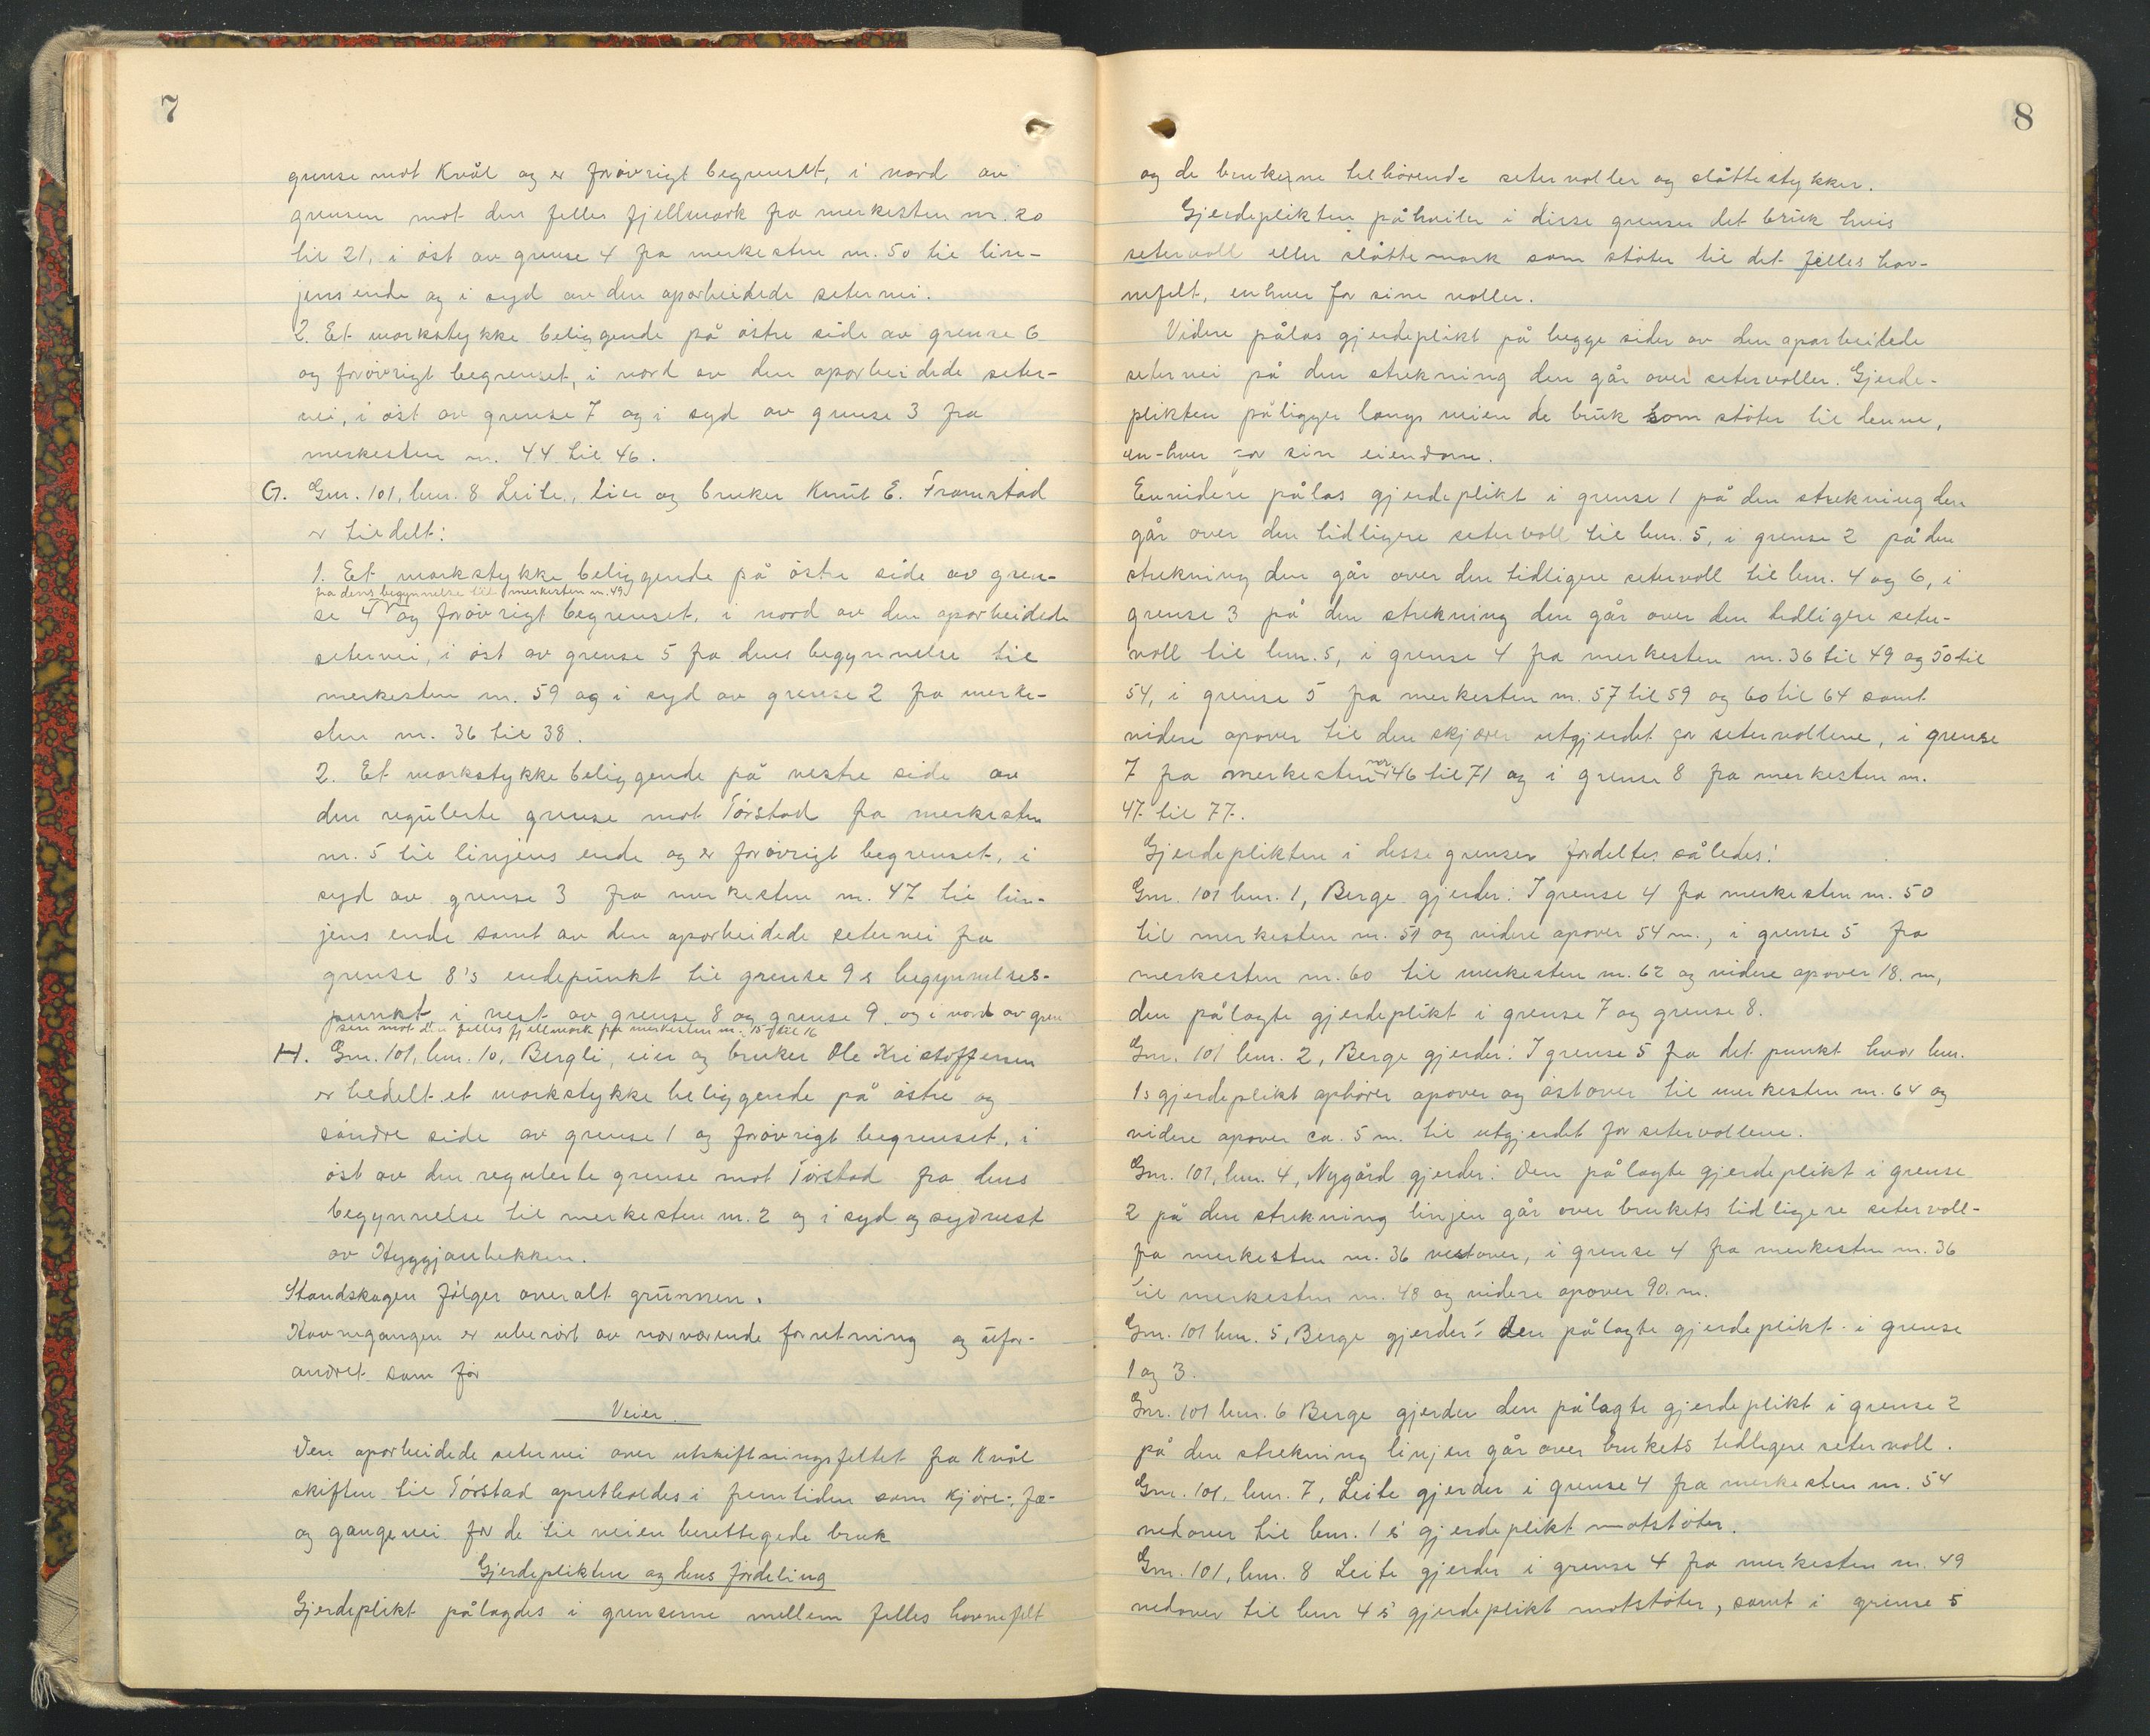 7
grense mot Kvål og er forøvrigt begrenset, i nord av
grensen mot den felles fjellmark fra merkesten nr. 20
til 21, i øst av grense 4 fra merkesten nr. 50 til lin-
jens ende og i syd av den oparbeidede setervei.
2. Et markstykke beliggende på østre side av grense 6
og forøvrigt begrenset, i nord av den oparbeidede seter-
vei, i øst av grense 7 og i syd av grense 3 fra
merkesten nr. 44 til 46.
G. Gnr. 101, bnr. 8 Leite, eier og bruker Knut E. Framstad
er tildelt:
1. Et markstykke beliggende på østre side av gren-
fra dens begynnelse til merkesten nr. 49
se 4 og forøvrigt begrenset, i nord av den oparbeidede
setervei, i øst av grense 5 fra dens begynnelse til
merkesten nr. 59 og i syd av grense 2 fra merke-
sten nr. 36 til 38.
2. Et markstykke beliggende på vestre side av
den regulerte grense mot Tørstad fra merkesten
nr. 5 til linjens ende og er forøvrigt begrenset, i
syd av grense 3 fra merkesten nr. 47 til lin-
jens ende samt av den oparbeidede setervei fra
grense 8's endepunkt til grense 9s begynnelses-
punkt, i vest av grense 8 og grense 9 og i nord av gren
sen mot den felles fjellmark fra merkesten nr. 15 til 16
H. Gnr. 101, bnr. 10, Bergli, eier og bruker Ole Kristoffersen
er tildelt et markstykke beliggende på østre og
søndre side av grense 1 og forøvrigt begrenset, i
øst av den regulerte grense mot Tørstad fra dens
begynnelse til merkesten nr. 2 og i syd og sydvest
av Hyggjanbekken.
Standskogen følger overalt grunnen.
Havnegangen er uberørt av nærværende forretning og ufor-
andret som før
Veier.
Den oparbeidede setervei over utskiftningsfeltet fra Kvål
skiften til Tørstad opretholdes i fremtiden som kjøre-, fæ-
og gangevei for de til veien berettigede bruk
Gjerdeplikten og dens fordeling
Gjerdeplikt pålagdes i grenserne mellem felles havnefelt
8
og de brukerne tilhørende setervoller og slåttestykker.
Gjerdeplikten påhviler i disse grenser det bruk hvis
setervoll eller slåttemark som støter til det felles hav-
nefelt, enhver for sine voller.
Videre pålas gjerdeplikt på begge sider av den oparbeidede
setervei på den strekning den går over setervoller. Gjerde-
plikten påligger langs veien de bruk som støter til denne,
en-hver for sin eiendom.
Envidere pålas gjerdeplikt i grense 1 på den strekning den
går over den tidligere setervoll til bnr. 5, i grense 2 på den
strekning den går over den tidligere setervoll til bnr. 4 og 6, i
grense 3 på den strekning den går over den tidligere seter-
voll til bnr. 5, i grense 4 fra merkesten nr. 36 til 49 og 50 til
54, i grense 5 fra merkesten nr. 57 til 59 og 60 til 64 samt
videre opover til den skjærer utgjerdet for setervollene, i grense
7 fra merkesten nr. 46 til 71 og i grense 8 fra merkesten nr.
47 til 77.
Gjerdeplikten i disse grenser fordeltes således:
Gnr. 101 bnr. 1, Berge gjerder: I grense 4 fra merkesten nr. 50
til merkesten nr. 51 og videre opover 54 m., i grense 5 fra
merkesten nr. 60 til merkesten nr. 62 og videre opover 18. m,
den pålagte gjerdeplikt i grense 7 og grense 8.
Gnr. 101 bnr. 2, Berge gjerder: I grense 5 fra det punkt hvor bnr.
1s gjerdeplikt ophører opover og østover til merkesten nr. 64 og
videre opover ca. 5 m. til utgjerdet for setervollene.
Gnr. 101, bnr. 4, Nygård gjerder: Den pålagte gjerdeplikt i grense
2 på den strekning linjen går over brukets tidligere setervoll-
fra merkesten nr. 36 vestover, i grense 4 fra merkesten nr. 36
til merkesten nr. 48 og videre opover 90. m.
Gnr. 101 bnr. 5, Berge gjerder: den pålagte gjerdeplikt i grense
1 og 3.
Gnr. 101 bnr. 6 Berge gjerder den pålagte gjerdeplikt i grense 2
på den strekning linjen går over brukets tidligere setervoll.
Gnr. 101, bnr. 7, Leite gjerder i grense 4 fra merkesten nr. 54
nedover til bnr. 1s' gjerdeplikt motstøter.
Gnr. 101, bnr. 8 Leite gjerder i grense 4 fra merkesten nr. 49
nedover til bnr 4s' gjerdeplikt motstøter, samt i grense 5